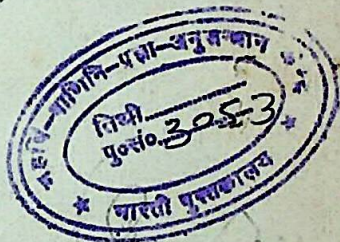 महर्षि-पाणिनि-प्रज्ञा-अनुसन्धान
तिथी
पु०सं० 3053
भारती पुस्तकालय